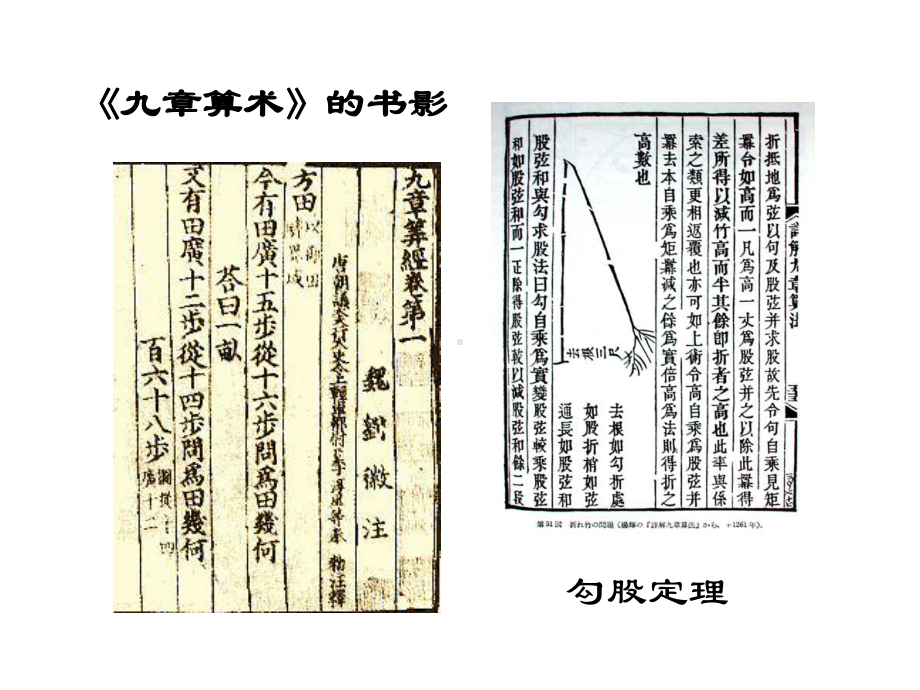 《九章算术》的书影
九章筭經卷第一
魏劉徽注
方田以御田疇界域
今有田廣十五步從十六步問爲田幾何
荅曰一畝
又有田廣十二步從十四步問爲田幾何
百六十八步
折抵地爲弦以句及股弦并求股故先令句自乘見矩
冪令如高而一凡爲高一丈爲股弦并之以除此冪得
差所得以減竹高而半其餘即折者之高也此率與係
索之類更相返覆也亦可如上術令高自乘爲股弦并
冪去本自乘爲矩冪減之餘爲實倍高爲法則得折之
高數也
去根三尺
去根如勾折處
如股折梢如弦
通長如股弦和
股弦和與勾求股法曰勾自乘爲實變股弦較乘股弦
和如股弦和而一正除得股弦較以減股弦和餘二段
詳解九章算法
第51図 折れ竹の問題(楊輝の『詳解九章算法』から，+1261年).
勾股定理